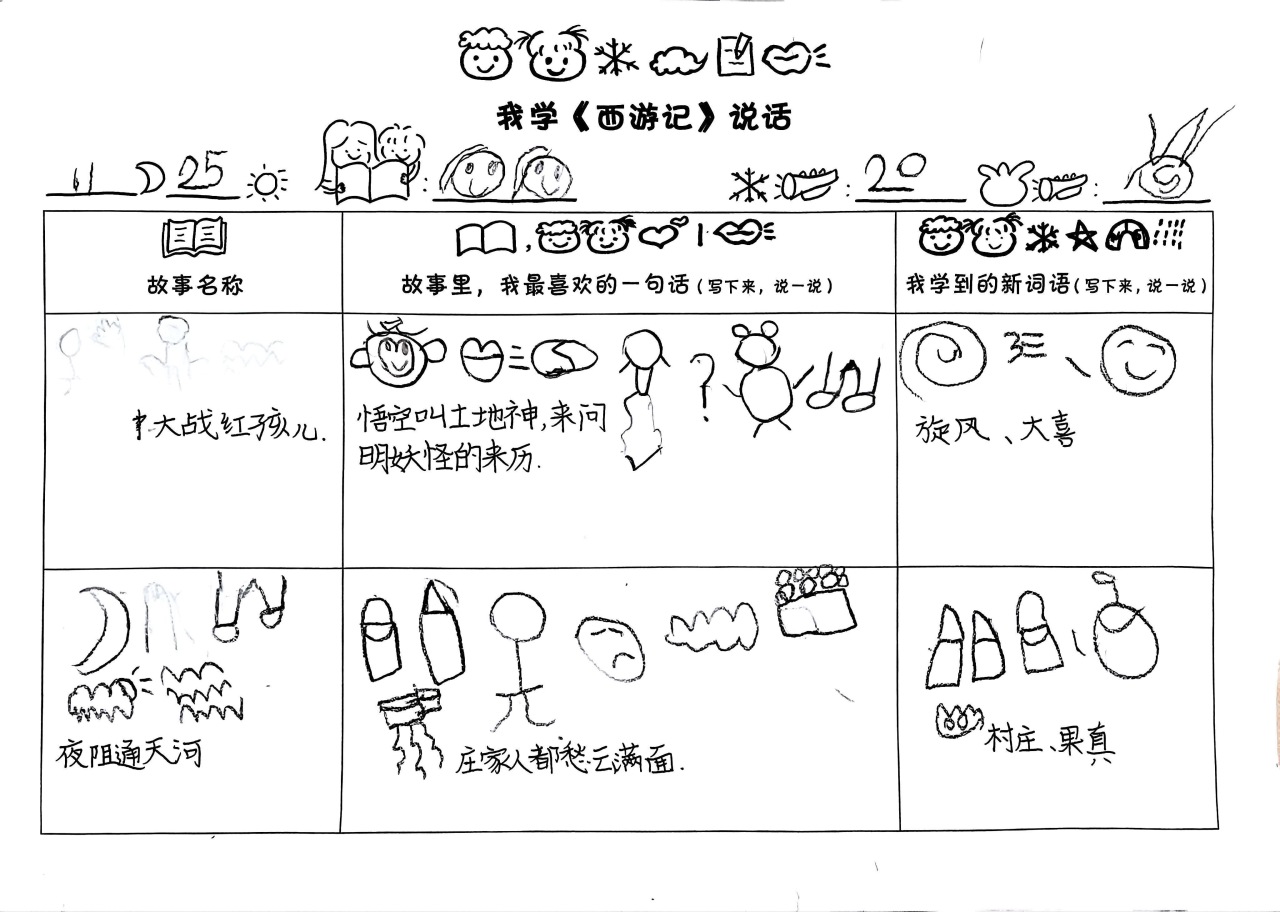 我学《西游记》说话
11 25 : : 20 :
故事名称
故事里，我最喜欢的一句话（写下来，说一说）
我学到的新词语（写下来，说一说）
大战红孩儿.
悟空叫土地神,来问
明妖怪的来历.
?
旋风、大喜
夜阻通天河
庄家人都愁云满面.
村庄、果真